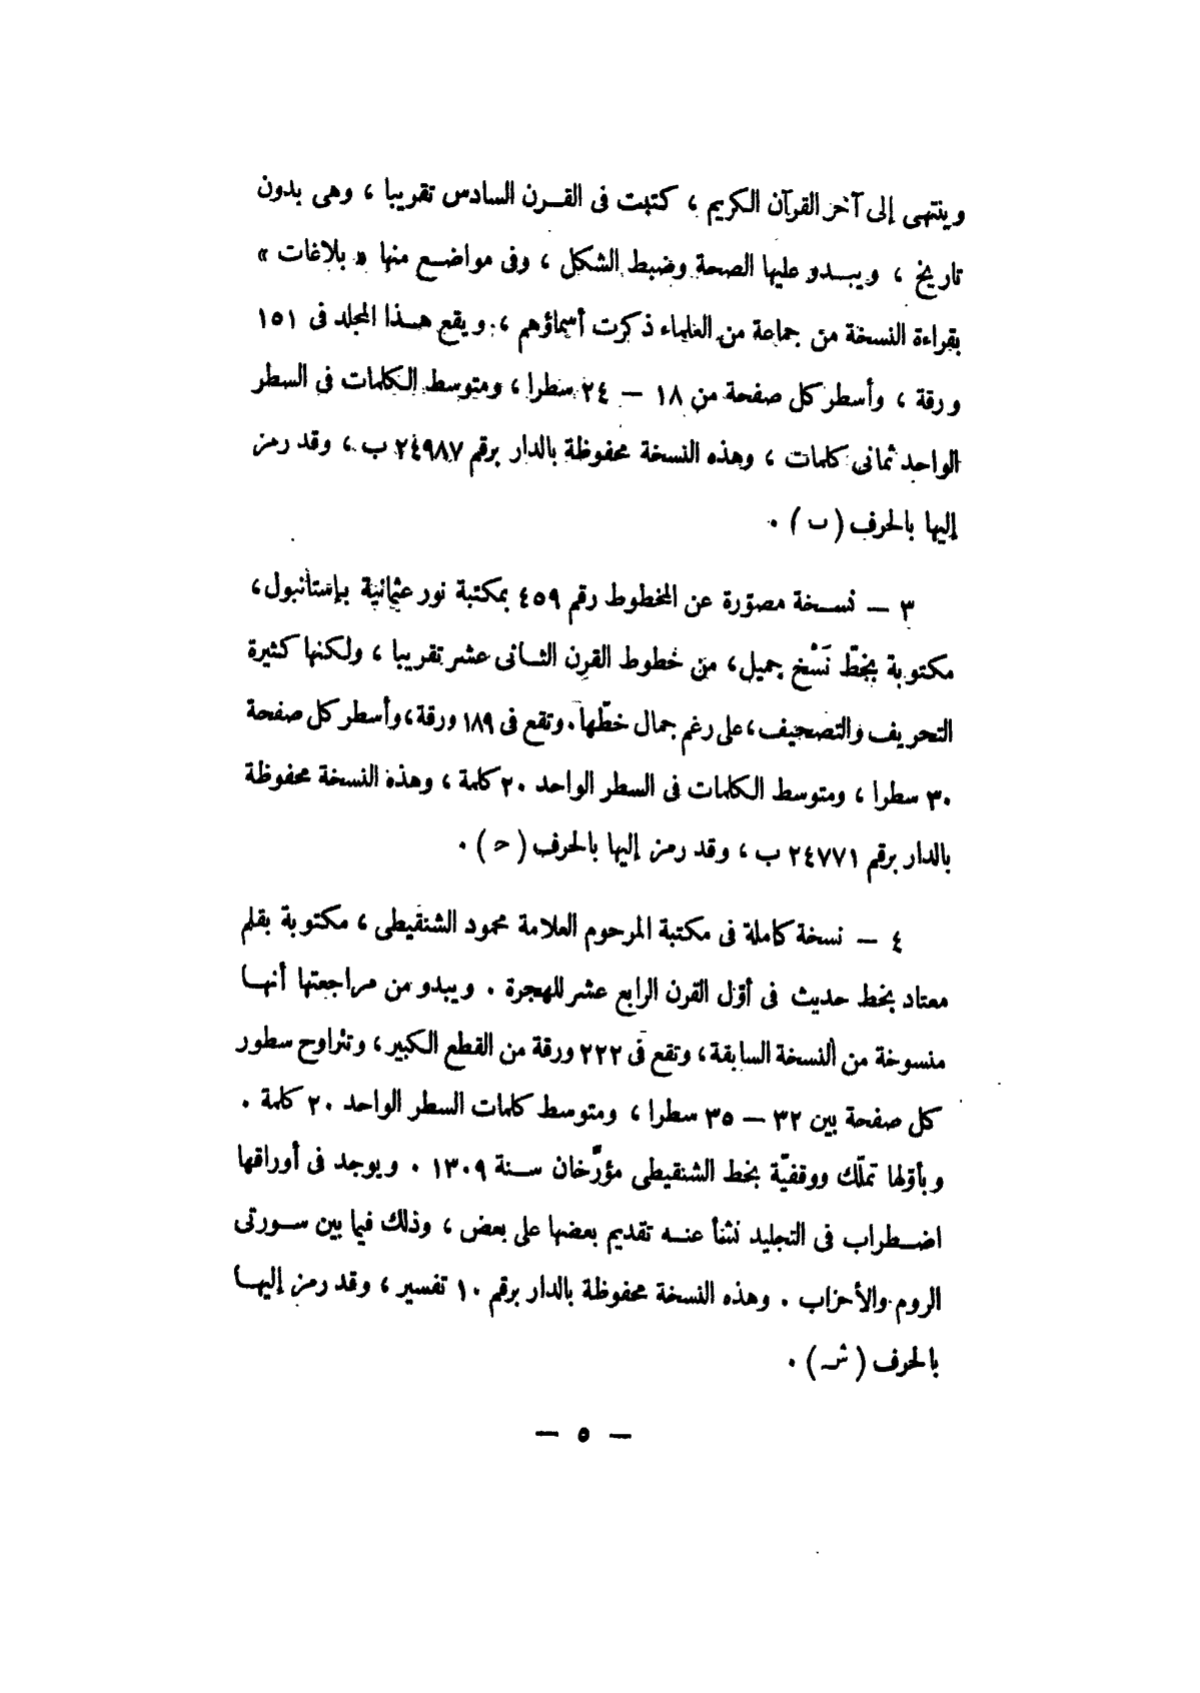 وينتهى إلى آخر القرآن الكريم ، كتبت فى القرن السادس تقريبا ، وهى بدون
تاريخ ، ويبدو عليها الصحة وضبط الشكل ، وفى مواضع منها « بلاغات »
بقراءة النسخة من جماعة من العلماء ذكرت أسماؤهم ، ويقع هذا المجلد فى ١٥١
ورقة ، وأسطر كل صفحة من ١٨ — ٢٤ سطرا ، ومتوسط الكلمات فى السطر
الواحد ثمانى كلمات ، وهذه النسخة محفوظة بالدار برقم ٢٤٩٨٧ ب ، وقد رمز
إليها بالحرف ( ب ) .
٣ — نسخة مصوّرة عن المخطوط رقم ٤٥٩ بمكتبة نور عثمانية بإستانبول،
مكتوبة بخطّ نَسْخ جميل، من خطوط القرن الثانى عشر تقريبا ، ولكنها كثيرة
التحريف والتصحيف، على رغم جمال خطّها . وتقع فى ١٨٩ ورقة، وأسطر كل صفحة
٣٠ سطرا ، ومتوسط الكلمات فى السطر الواحد ٢٠ كلمة ، وهذه النسخة محفوظة
بالدار برقم ٢٤٧٧١ ب ، وقد رمز إليها بالحرف ( ح ) .
٤ — نسخة كاملة فى مكتبة المرحوم العلامة محمود الشنقيطى ، مكتوبة بقلم
معتاد بخط حديث فى أوّل القرن الرابع عشر للهجرة . ويبدو من مراجعتها أنها
منسوخة من النسخة السابقة، وتقع فى ٢٢٢ ورقة من القطع الكبير، وتتراوح سطور
كل صفحة بين ٣٢ — ٣٥ سطرا ، ومتوسط كلمات السطر الواحد ٢٠ كلمة .
وبأوّلها تملّك ووقفيّة بخط الشنقيطى مؤرّخان سنة ١٣٠٩ . ويوجد فى أوراقها
اضطراب فى التجليد نشأ عنه تقديم بعضها على بعض ، وذلك فيما بين سورتى
الروم والأحزاب . وهذه النسخة محفوظة بالدار برقم ١٠ تفسير ، وقد رمز إليها
بالحرف ( ش ) .
— ٥ —